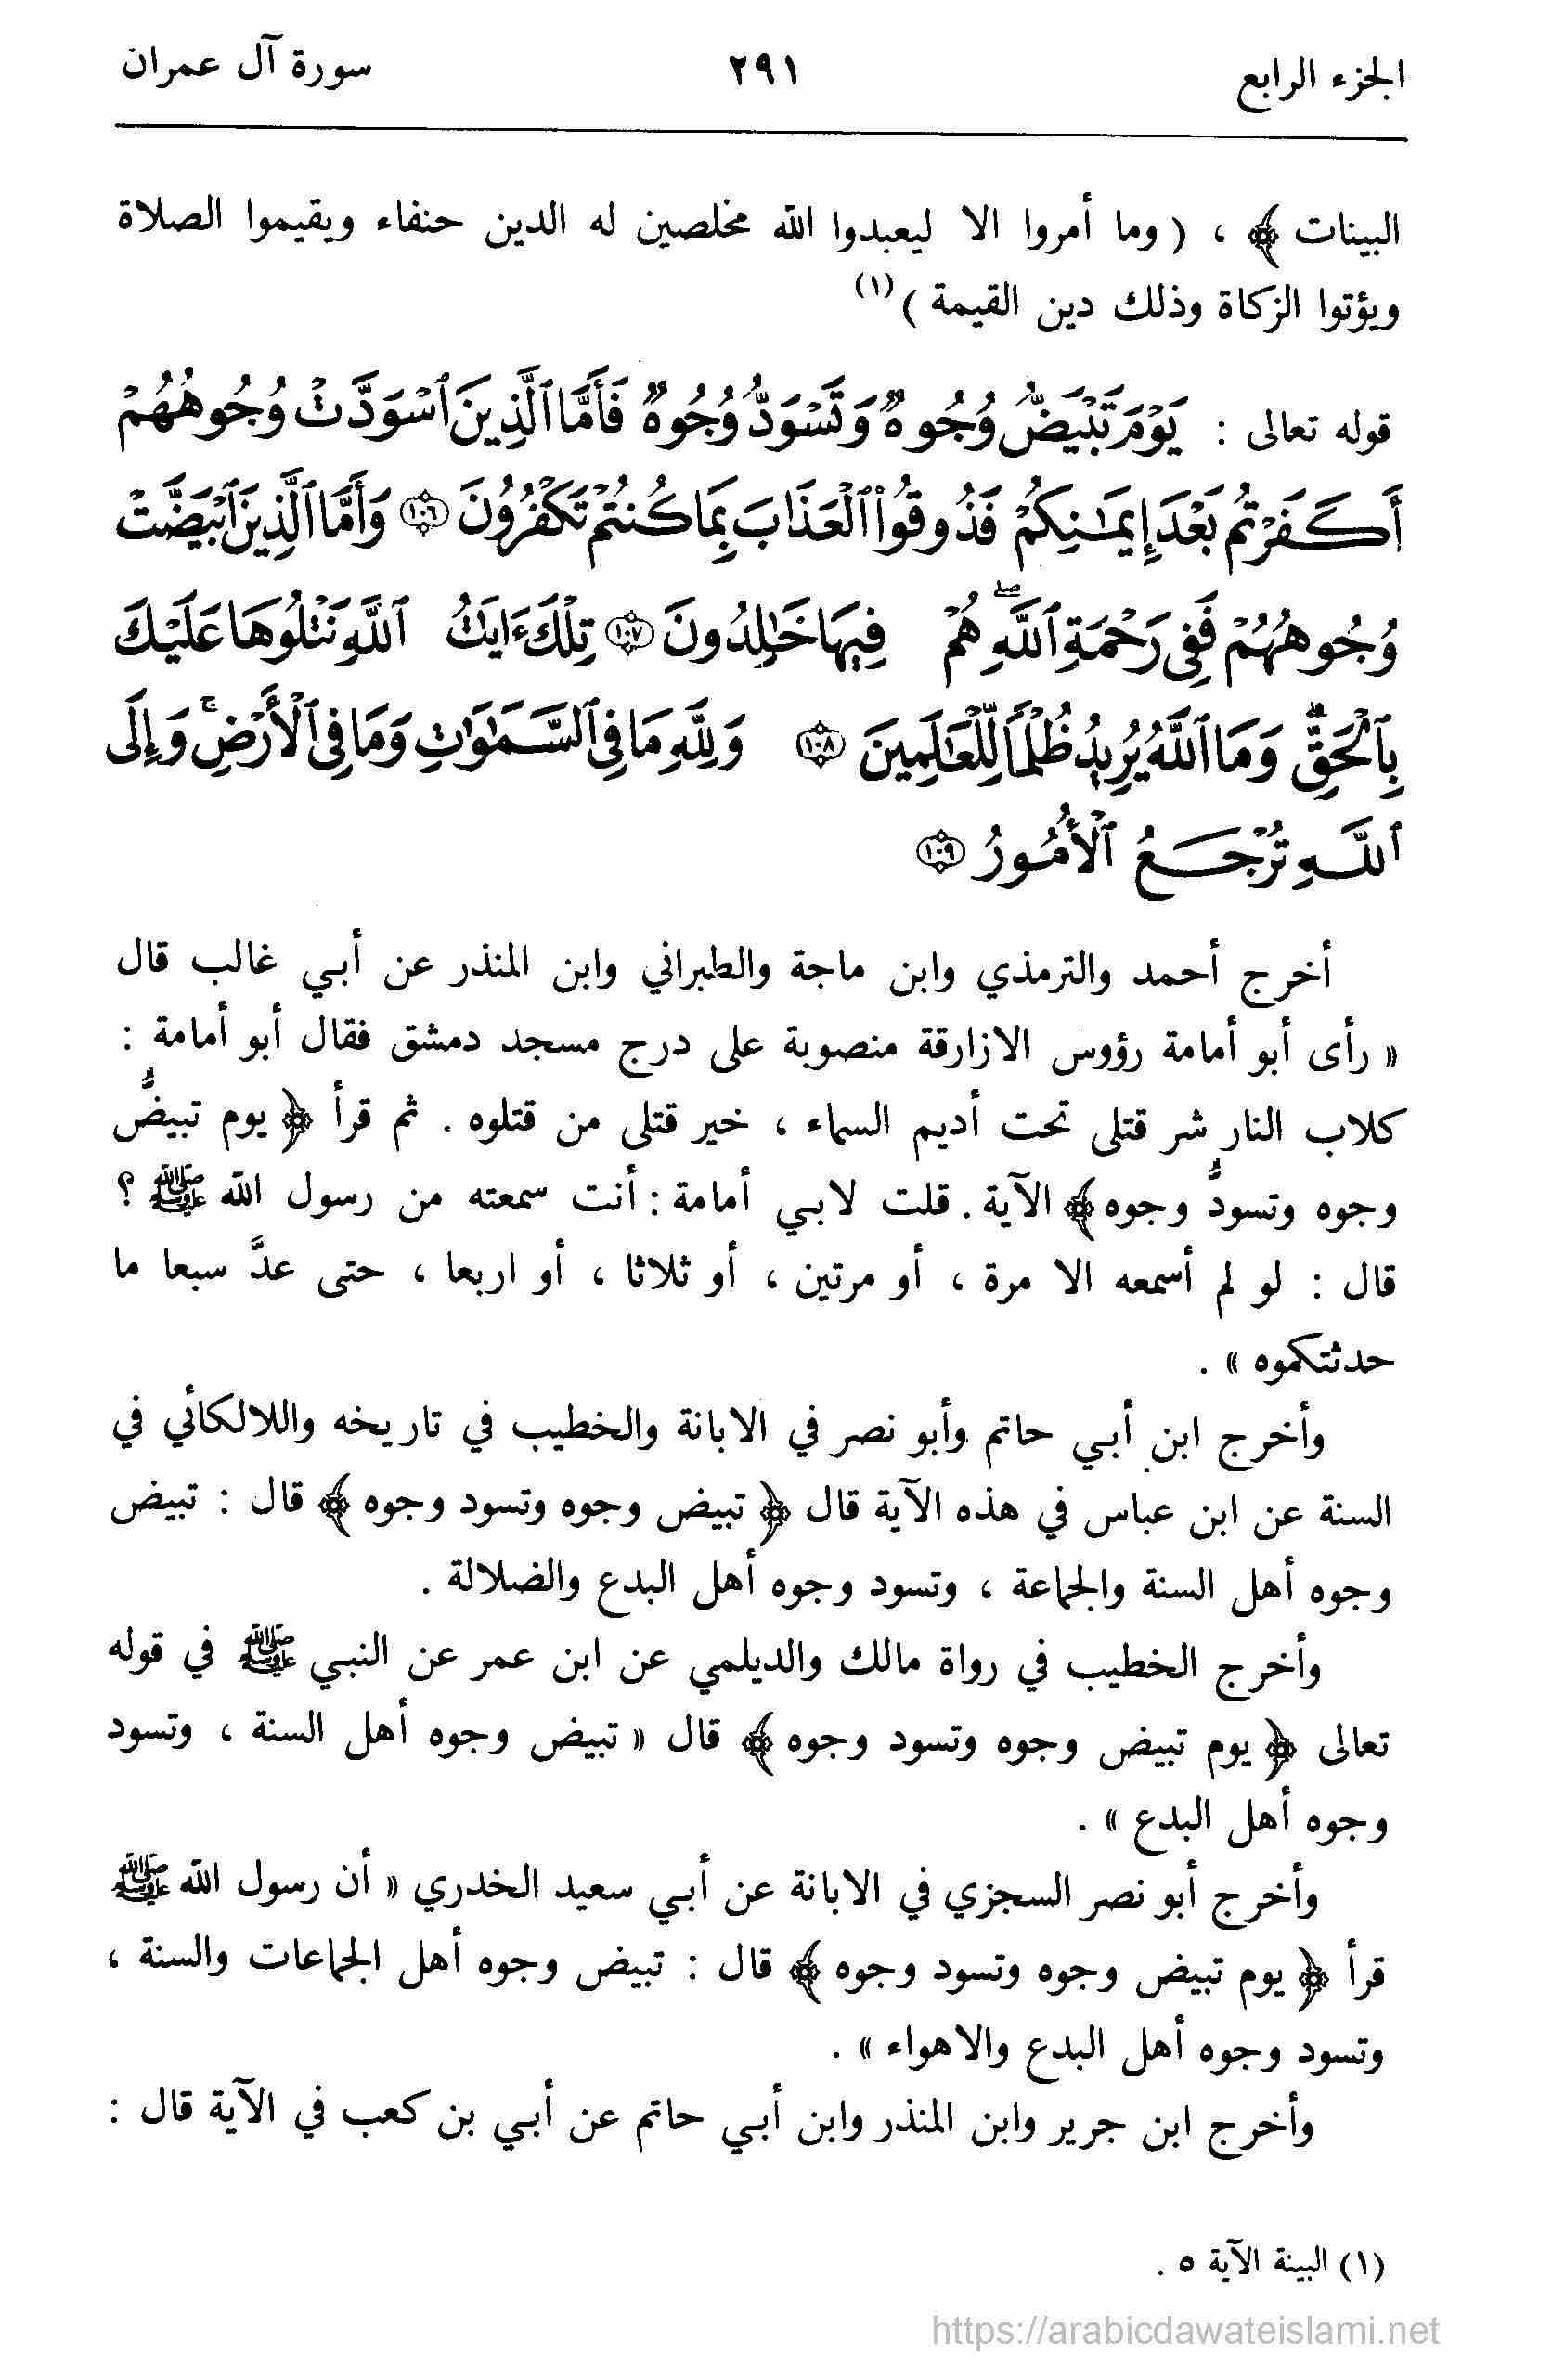 الجزء الرابع ٢٩١ سورة آل عمران
البينات ﴾ ، ( وما أمروا الا ليعبدوا الله مخلصين له الدين حنفاء ويقيموا الصلاة
ويؤتوا الزكاة وذلك دين القيمة ) (١)
قوله تعالى : يَوْمَ تَبْيَضُّ وُجُوهٌ وَتَسْوَدُّ وُجُوهٌ فَأَمَّا ٱلَّذِينَ ٱسْوَدَّتْ وُجُوهُهُمْ
أَكَفَرْتُم بَعْدَ إِيمَـٰنِكُمْ فَذُوقُوا۟ ٱلْعَذَابَ بِمَا كُنتُمْ تَكْفُرُونَ ١٠٦ وَأَمَّا ٱلَّذِينَ ٱبْيَضَّتْ
وُجُوهُهُمْ فَفِى رَحْمَةِ ٱللَّهِ ۖ هُمْ فِيهَا خَـٰلِدُونَ ١٠٧ تِلْكَ ءَايَـٰتُ ٱللَّهِ نَتْلُوهَا عَلَيْكَ
بِٱلْحَقِّ ۗ وَمَا ٱللَّهُ يُرِيدُ ظُلْمًا لِّلْعَـٰلَمِينَ ١٠٨ وَلِلَّهِ مَا فِى ٱلسَّمَـٰوَٰتِ وَمَا فِى ٱلْأَرْضِ ۚ وَإِلَى
ٱللَّهِ تُرْجَعُ ٱلْأُمُورُ ١٠٩
أخرج أحمد والترمذي وابن ماجة والطبراني وابن المنذر عن أبي غالب قال
« رأى أبو أمامة رؤوس الازارقة منصوبة على درج مسجد دمشق فقال أبو أمامة :
كلاب النار شر قتلى تحت أديم السماء ، خير قتلى من قتلوه . ثم قرأ ﴿ يوم تبيضُّ
وجوه وتسودُّ وجوه ﴾ الآية . قلت لابي أمامة : أنت سمعته من رسول الله ﷺ ؟
قال : لو لم أسمعه الا مرة ، أو مرتين ، أو ثلاثا ، أو اربعا ، حتى عدَّ سبعا ما
حدثتكموه » .
وأخرج ابن أبي حاتم وأبو نصر في الابانة والخطيب في تاريخه واللالكائي في
السنة عن ابن عباس في هذه الآية قال ﴿ تبيض وجوه وتسود وجوه ﴾ قال : تبيض
وجوه أهل السنة والجماعة ، وتسود وجوه أهل البدع والضلالة .
وأخرج الخطيب في رواة مالك والديلمي عن ابن عمر عن النبي ﷺ في قوله
تعالى ﴿ يوم تبيض وجوه وتسود وجوه ﴾ قال « تبيض وجوه أهل السنة ، وتسود
وجوه أهل البدع » .
وأخرج أبو نصر السجزي في الابانة عن أبي سعيد الخدري « أن رسول الله ﷺ
قرأ ﴿ يوم تبيض وجوه وتسود وجوه ﴾ قال : تبيض وجوه أهل الجماعات والسنة ،
وتسود وجوه أهل البدع والاهواء » .
وأخرج ابن جرير وابن المنذر وابن أبي حاتم عن أبي بن كعب في الآية قال :
(١) البينة الآية ٥ .
https://arabicdawateislami.net